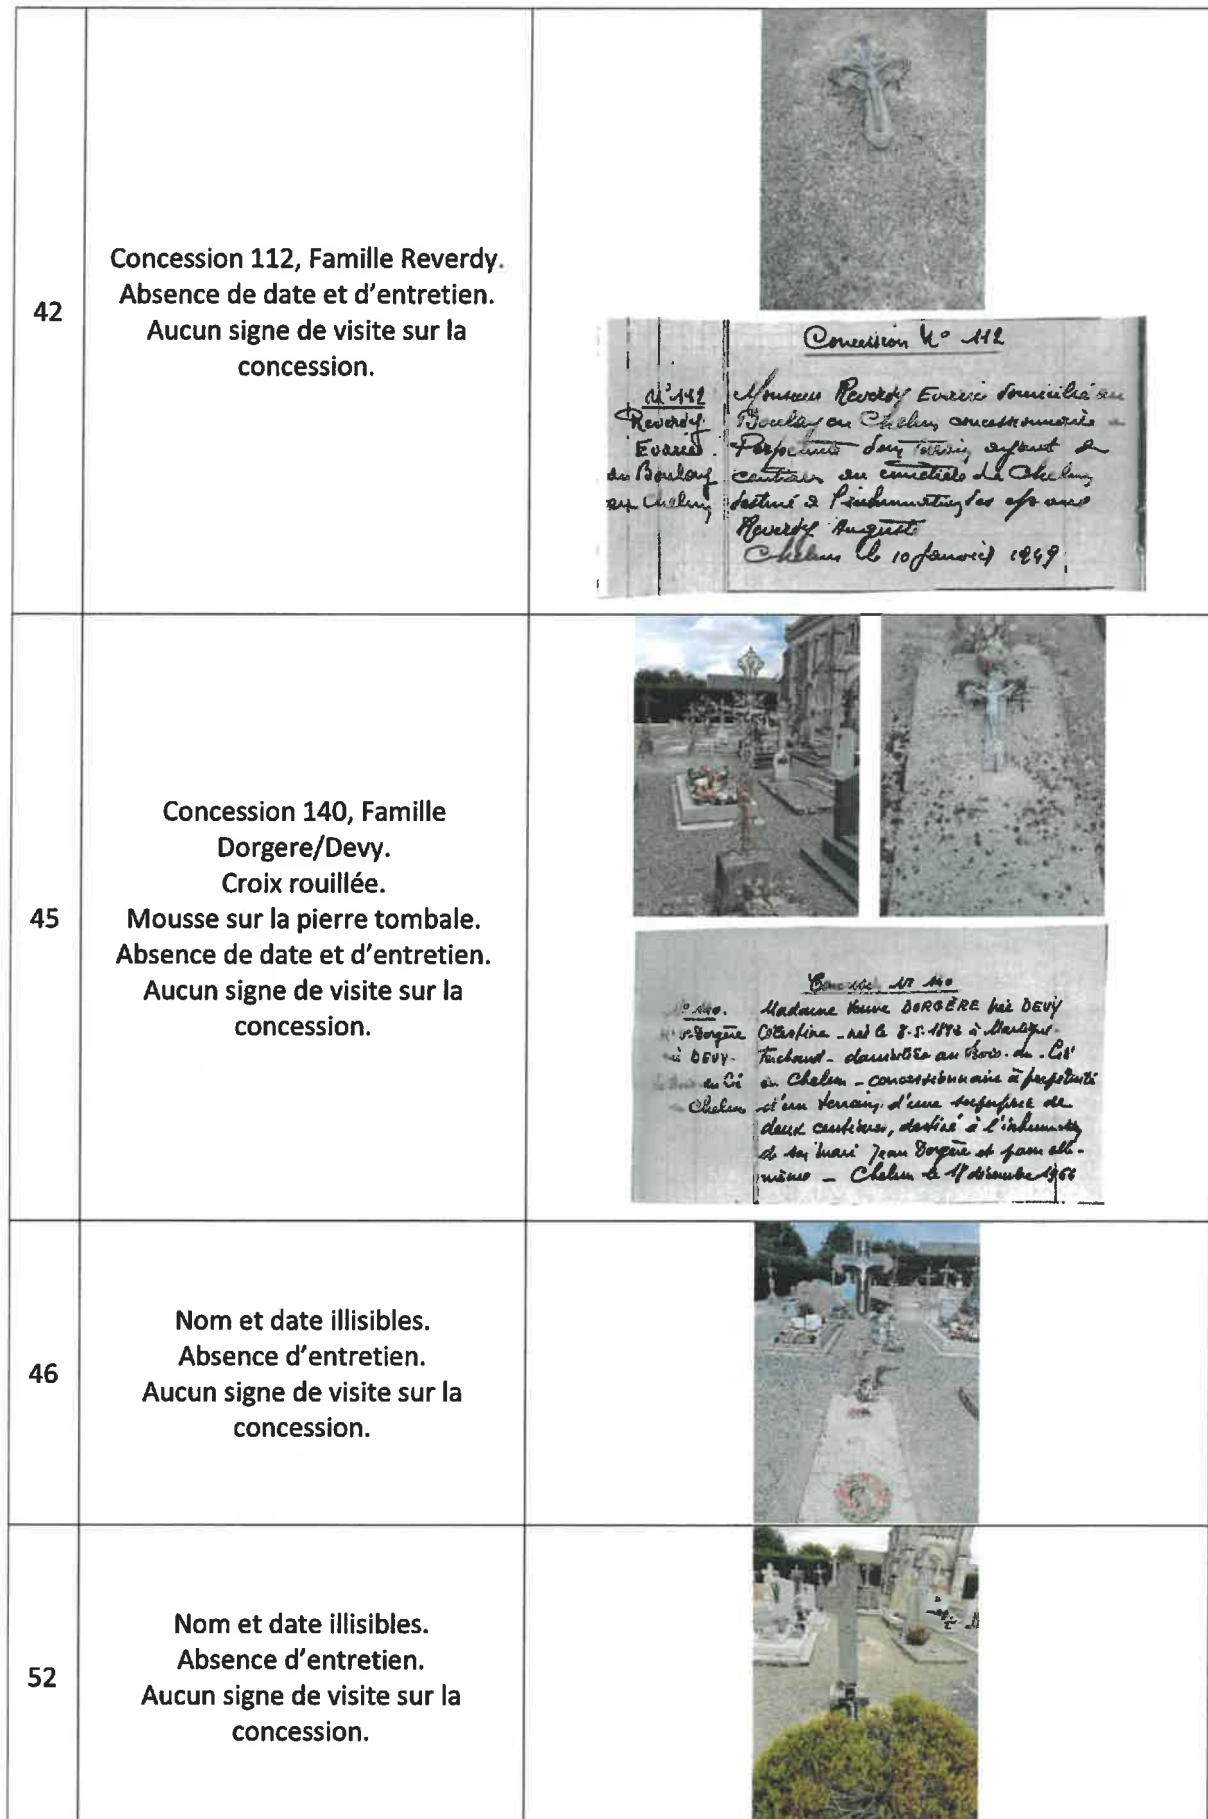 42
Concession 112, Famille Reverdy.
Absence de date et d'entretien.
Aucun signe de visite sur la
concession.
Concession N° 112
N° 112
Reverdy
Evariste
au Boulay
en Chelun
Monsieur Reverdy Evariste domicilié au
Boulay en Chelun concessionnaire à
Perpétuité d'un terrain ayant
centiares au cimetière de Chelun
destiné à l'inhumation des époux
Reverdy Auguste
Chelun le 10 janvier 1949.
45
Concession 140, Famille
Dorgere/Devy.
Croix rouillée.
Mousse sur la pierre tombale.
Absence de date et d'entretien.
Aucun signe de visite sur la
concession.
N° 140
N° 140.
Dorgère
née DEVY.
du Cé
Chelun
Madame Veuve DORGÈRE née DEVY
Célestine - née le 8.5.1892 à Martigné-
Ferchaud - domiciliée au Bois-du-Cé
en Chelun - concessionnaire à perpétuité
d'un terrain d'une superficie de
deux centiares, destiné à l'inhumation
de son mari Jean Dorgère et pour elle-
même - Chelun le décembre 1966
46
Nom et date illisibles.
Absence d'entretien.
Aucun signe de visite sur la
concession.
52
Nom et date illisibles.
Absence d'entretien.
Aucun signe de visite sur la
concession.